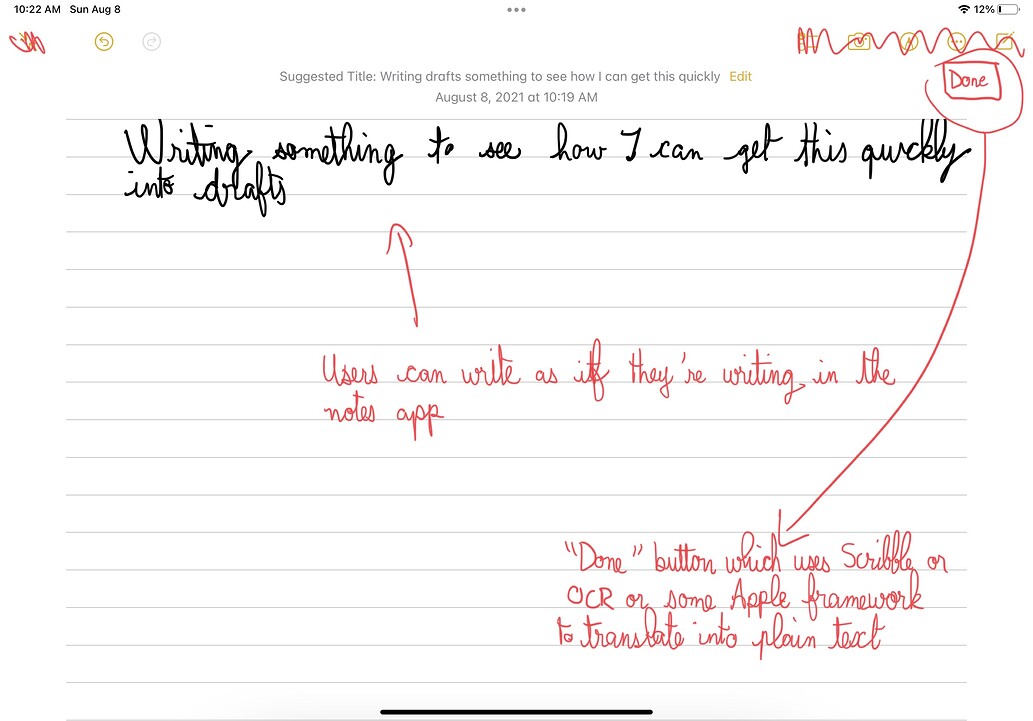 10:22 AM Sun Aug 8
12%
Done
Suggested Title: Writing drafts something to see how I can get this quickly Edit
August 8, 2021 at 10:19 AM
Writing something to see how I can get this quickly
into drafts
Users can write as if they're writing in the
notes app
"Done" button which uses Scribble or
OCR or some Apple framework
to translate into plain text